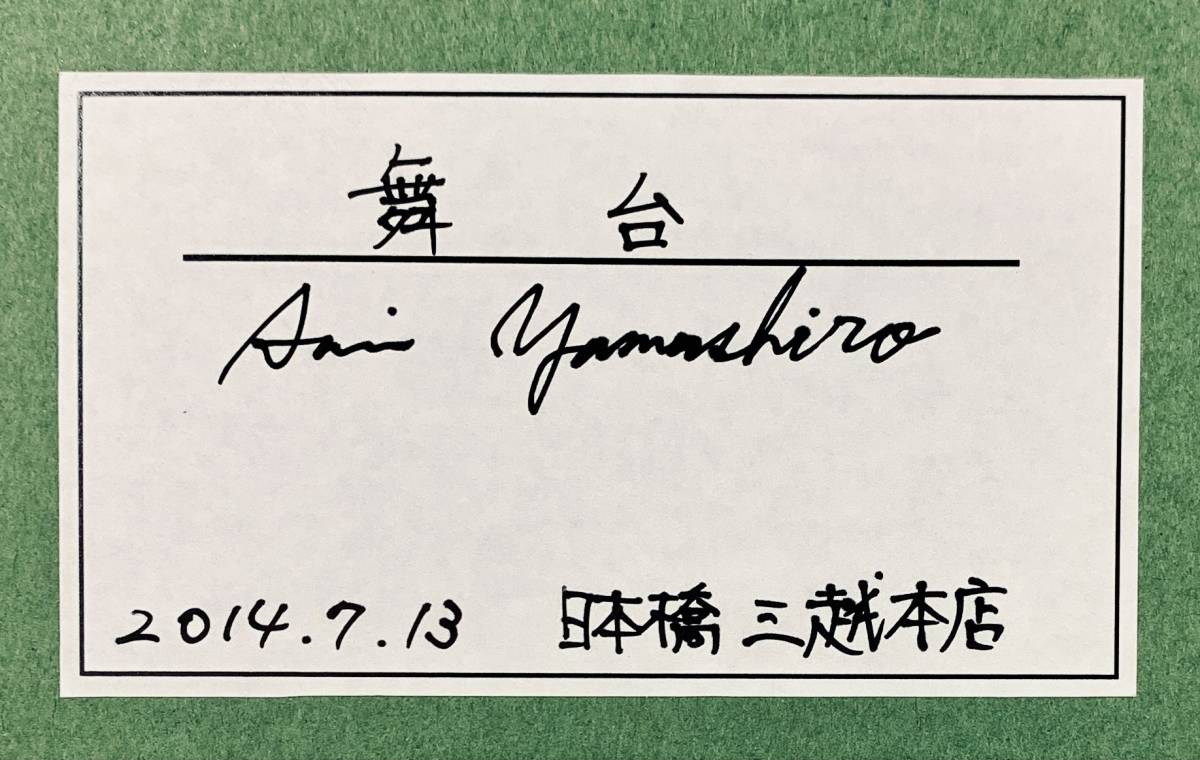 舞台
Yamashiro
2014.7.13 日本橋 三越本店